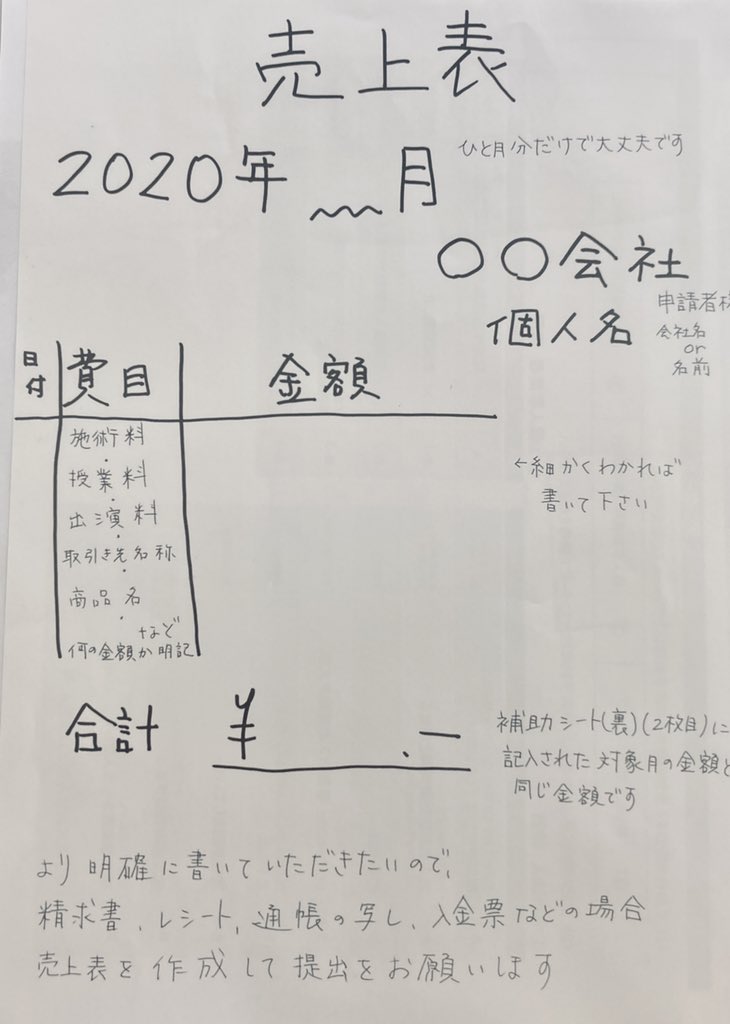 売上表
2020年 月
ひと月分だけで大丈夫です
〇〇会社
個人名
申請者様
会社名
or
名前
日付 費目 金額
施術料
・
授業料
・
出演料
・
取引き先名称
・
商品名
・
など
何の金額か明記
←細かくわかれば
書いて下さい
合計 ¥ .ー
補助シート(裏)(2枚目)に
記入された対象月の金額と
同じ金額です
より明確に書いていただきたいので、
精求書、レシート、通帳の写し、入金票などの場合
売上表を作成して提出をお願いします